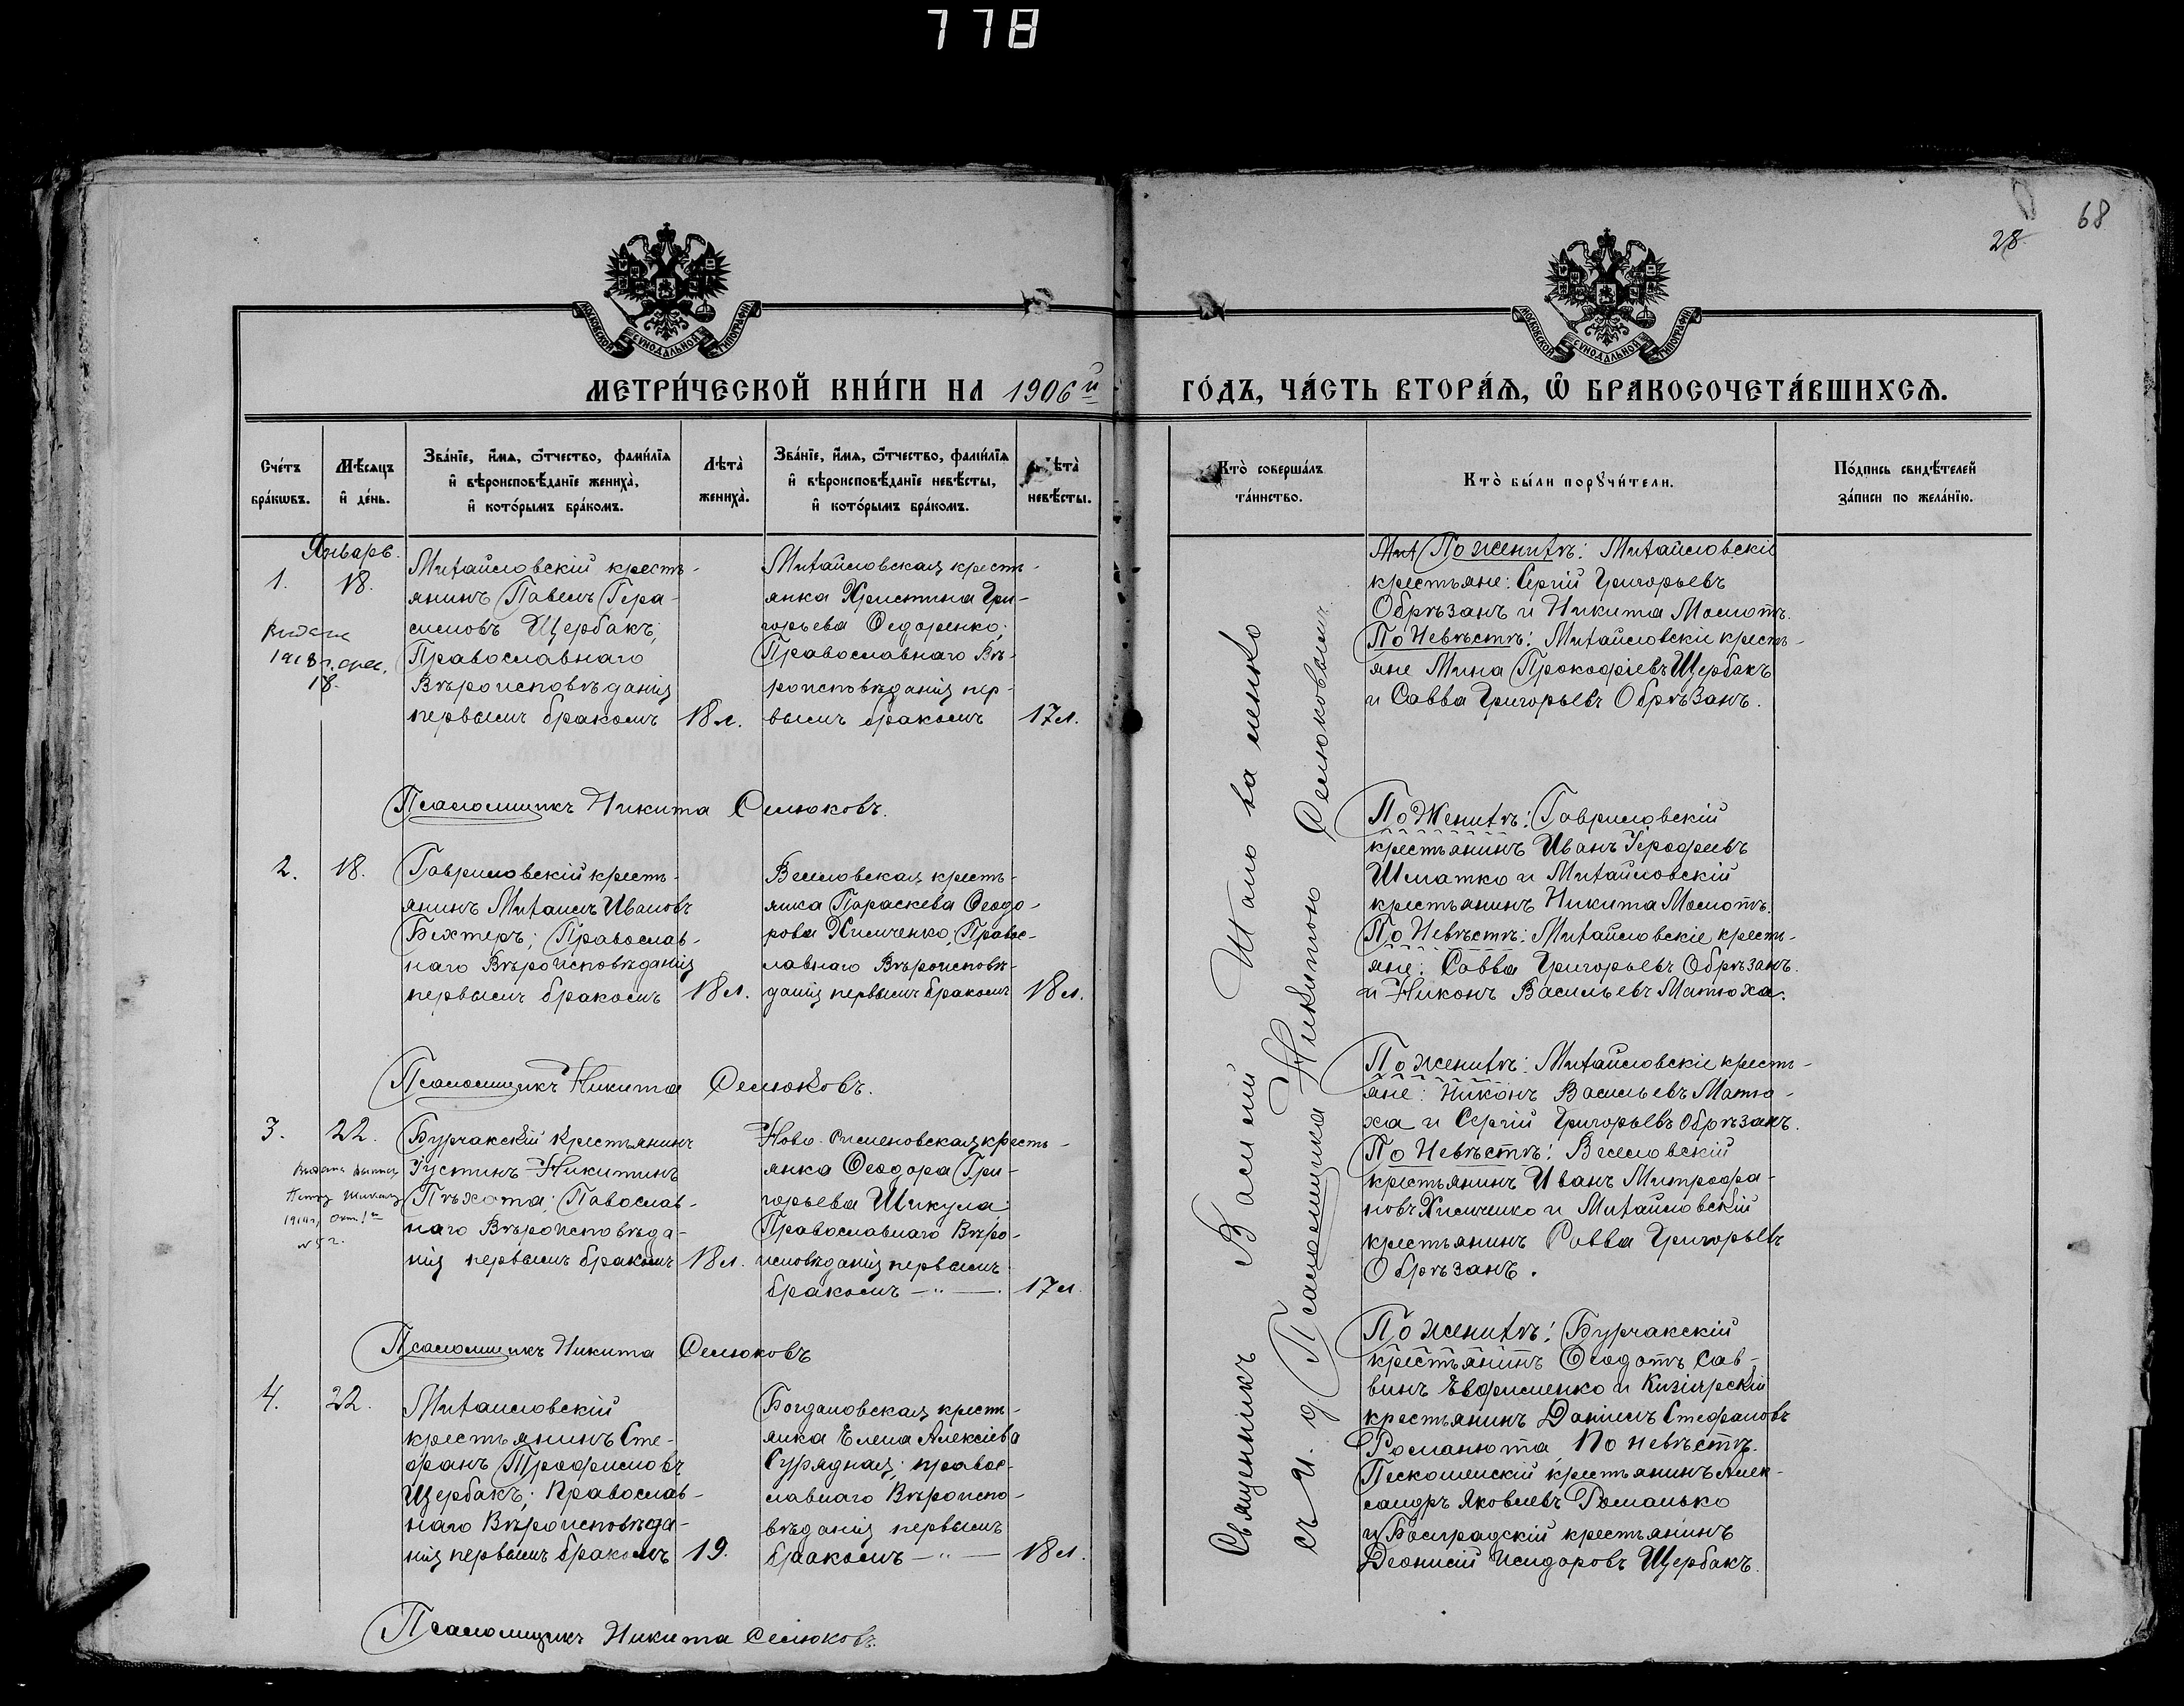 778
68
28
МОСКОВСКОЙ СУНОДАЛЬНОЙ ТИПОГРАФІИ
МОСКОВСКОЙ СУНОДАЛЬНОЙ ТИПОГРАФІИ
МЕТРИ́ЧЕСКОЙ КНИ́ГИ НА 1906й ГО́ДЪ, ЧА́СТЬ ВТОРА́Ѧ, Ѽ БРАКОСОЧЕТА́ВШИХСѦ.
Сче́тъ бра́кѡвъ.
Мѣ́сяцъ и҆ де́нь.
Зва́нїе, и҆́мѧ, ѻ҆́тчество, фами́лїѧ
и҆ вѣроисповѣ́данїе жениха̀,
и҆ кото́рымъ бра́комъ.
Лѣта̀ жениха̀.
Зва́нїе, и҆́мѧ, ѻ҆́тчество, фами́лїѧ
и҆ вѣроисповѣ́данїе невѣ́сты,
и҆ кото́рымъ бра́комъ.
Лѣта̀ невѣ́сты.
Кто̀ соверша́лъ та́инство.
Кто̀ бы́ли порꙋчи́тели.
По́дпись свидѣ́телей за́писи по жела́нїю.
Январь.
1.
18.
Михайловскій кресть-
янинъ Павелъ Гера-
симовъ Щербакъ;
Православнаго
Вѣроисповѣданія
первымъ бракомъ
18 л.
Михайловская кресть-
янка Христина Гри-
горьева Ѳедоренко;
Православнаго Вѣ-
роисповѣданія пер-
вымъ бракомъ
17 л.
18.
Псаломщикъ Никита Семюковъ.
2.
18.
Гавриловскій кресть-
янинъ Михаилъ Ивановъ
Бехтеръ; Православ-
наго Вѣроисповѣданія
первымъ бракомъ
18 л.
Веселовская кресть-
янка Параскева Ѳеодо-
рова Химченко, Правос-
лавнаго Вѣроисповѣ-
данія первымъ бракомъ
18 л.
Псаломщикъ Никита Семюковъ.
3.
22.
Бурчакскій крестьянинъ
Іустинъ Никитинъ
Пѣхота; Павослав-
наго Вѣроисповѣда-
нія первымъ бракомъ
18 л.
Ново-Филиповская кресть-
янка Ѳеодора Гри-
горьева Шикула
Православнаго Вѣро-
исповѣданія первымъ
бракомъ — " —.
17 л.
Псаломщикъ Никита Семюковъ
4.
22.
Михаиловскій
крестьянинъ Сте-
фанъ Трофимовъ
Щербакъ; Православ-
наго Вѣроисповѣда-
нія первымъ бракомъ
19.
Богдановская кресть-
янка Елена Алексіева
Сурядная; правос-
лавнаго Вѣроиспо-
вѣданія первымъ
браакомъ — " —
18 л.
Псаломщикъ Никита Семюковъ.
Священникъ Василій
съ и. д. Псаломщика Никитою Семюковымъ.
Мих По женихѣ: Михайловскіе
крестьяне: Сергій Григорьевъ
Обрѣзанъ и Никита Молотъ.
По Невѣстѣ: Михайловскіе кресть-
яне Мина Прокофіевъ Щербакъ
и Савва Григорьевъ Обрѣзанъ.
По Женихѣ: Гавриловскій
крестьянинъ Иванъ Ерофеевъ
Шматко и Михайловскій
крестьянинъ Никита Молотъ.
По Невѣстѣ: Михайловскіе кресть-
яне: Савва Григорьевъ Обрѣзанъ.
и Никонъ Васильевъ Матюха.
По женихѣ: Михайловскіе кресть-
яне: Никонъ Васильевъ Матю-
ха и Сергій Григорьевъ Обрѣзанъ.
По Невѣстѣ: Веселовскій
крестьянинъ Иванъ Митрофа-
новъ Химченко и Михайловскій
крестьянинъ Савва Григорьевъ
Обрѣзанъ.
По женихѣ: Бурчакскій
крестьянинъ Ѳеодотъ Сав-
винъ Ефименко и Кизіярскій
крестьянинъ Даніилъ Стефановъ
Романюта По невѣстѣ.
крестьянинъ Алек-
сандръ Яковлевъ Романько
и Болградскій крестьянинъ
Деонисій Исидоровъ Щербакъ.